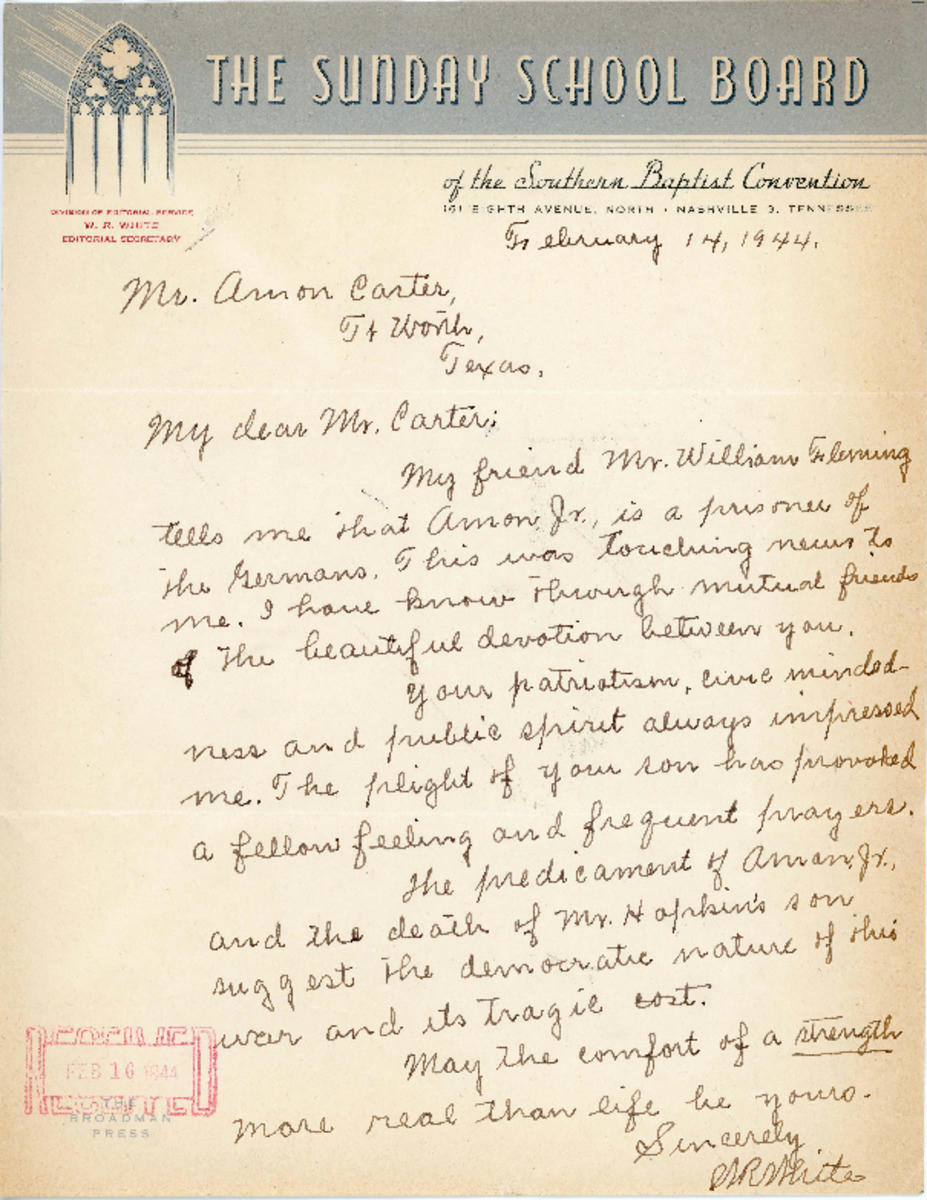 THE SUNDAY SCHOOL BOARD
of the Southern Baptist Convention
161 EIGHTH AVENUE, NORTH • NASHVILLE 3, TENNESSEE
DIVISION OF EDITORIAL SERVICE
W. R. WHITE
EDITORIAL SECRETARY
February 14, 1944.
Mr. Amon Carter,
Ft Worth,
Texas.
My dear Mr. Carter:
My friend Mr. William Fleming
tells me that Amon Jr., is a prisoner of
the Germans. This was touching news to
me. I have know through mutual friends
of the beautiful devotion between you.
Your patriotism, civic minded-
ness and public spirit always impressed
me. The plight of your son has provoked
a fellow feeling and frequent prayers.
The predicament of Amon Jr.,
and the death of Mr. Hopkin's son
suggest the democratic nature of this
war and its tragic cost.
May the comfort of a strength
more real than life be yours.
Sincerely
W R White
RECEIVED
FEB 16 1944
THE
BROADMAN
PRESS